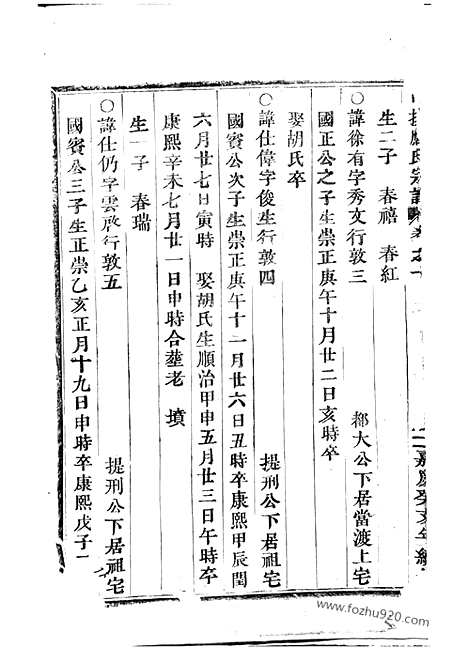 氏宗譜
嘉慶癸亥年
生二子　春禧　春紅
○諱徐有字秀文行敦三　都大公下居當渡上宅
國正公之子生崇正庚午十月廿二日亥時卒
娶胡氏卒
○諱仕偉字俊生行敦四　提刑公下居祖宅
國賓公次子生崇正庚午十一月廿六日丑時卒康熙甲辰閏
六月廿七日寅時　娶胡氏生順治甲申五月廿三日午時卒
康熙辛未七月廿一日申時合塟老墳
生一子　春瑞
○諱仕仍字雲啟行敦五　提刑公下居祖宅
國賓公三子生正崇乙亥正月十九日申時卒康熙戊子二
www.fozhu920.com